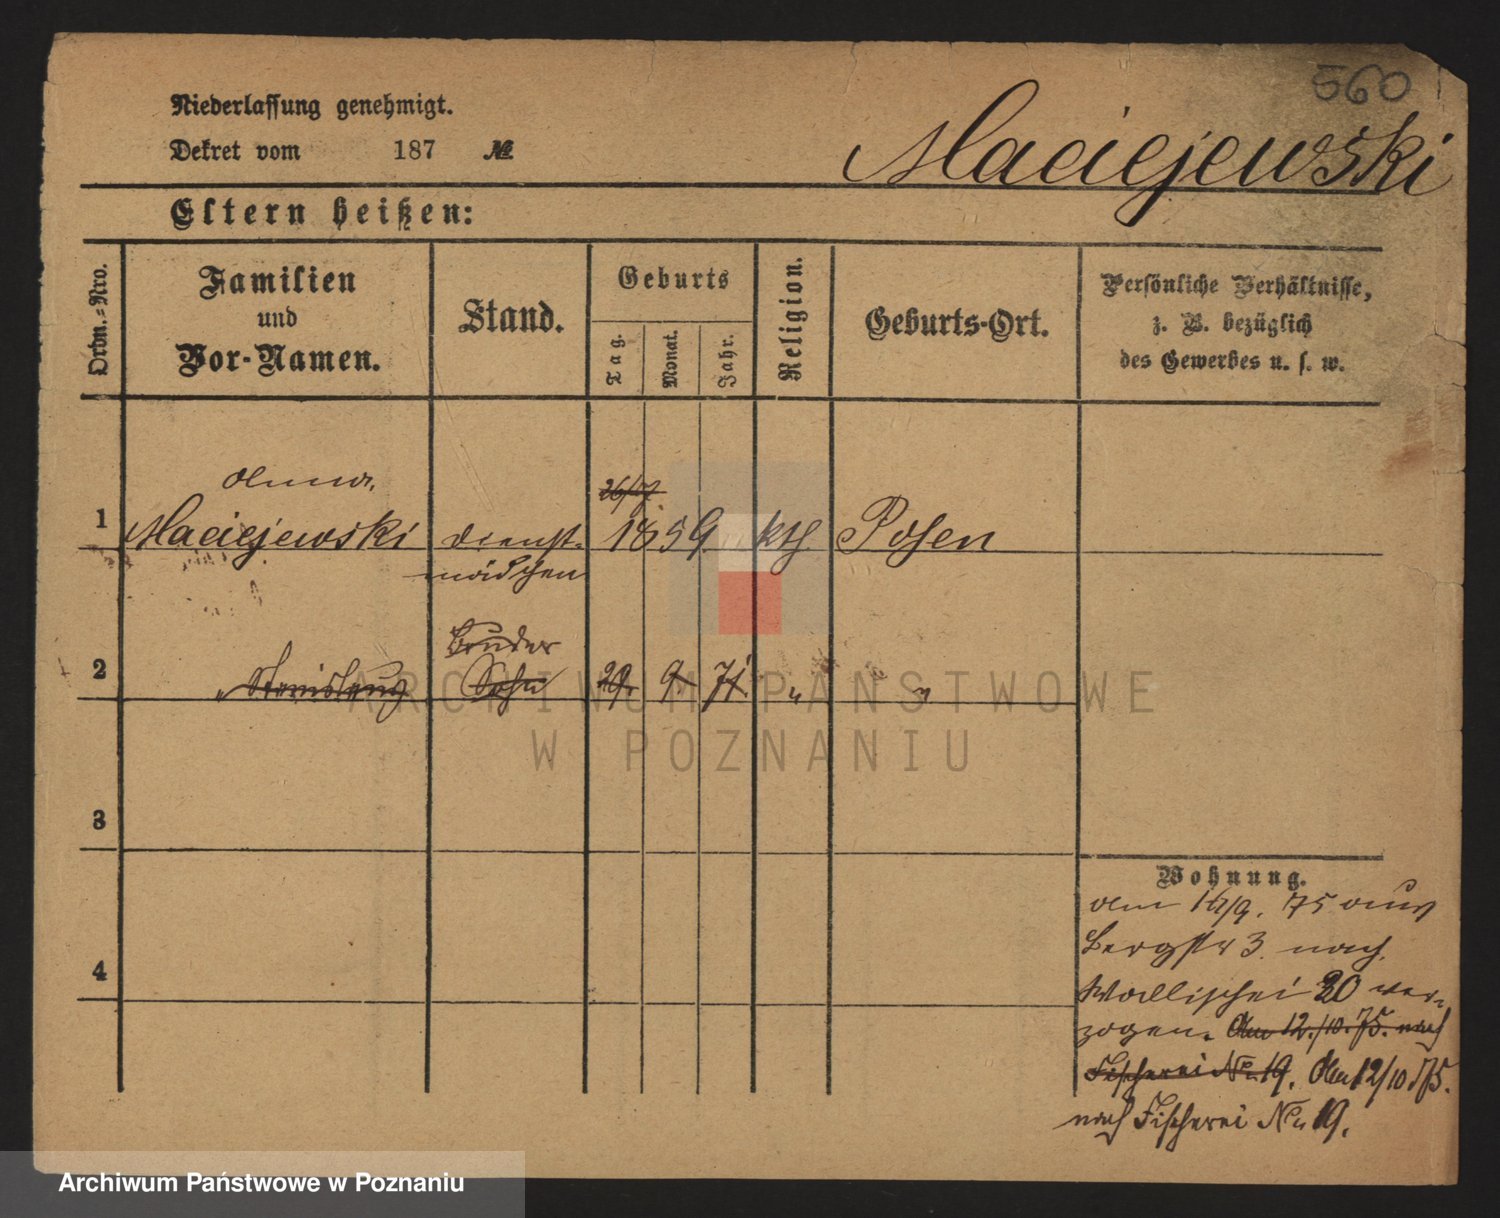 560
Niederlassung genehmigt.
Dekret vom 187 №
Maciejewski
Eltern heißen:
Ordn.-Nro.
Familien
und
Vor-Namen.
Stand.
Geburts
Tag.
Monat.
Jahr.
Religion.
Geburts-Ort.
Persönliche Verhältnisse,
z. B. bezüglich
des Gewerbes u. s. w.
Anna.
1 Maciejewski Dienst- 1859 kth. Posen
mädchen
Bruder
2 " Stanislaus Sohn 29. 9. 71. " "
3
4
Wohnung.
Am 16/9. 75 aus
Bergstr 3. nach
Wallischei 20 ver-
zogen. Am 12./10. 75. nach
Fischerei No 19. Am 12/10 75.
nach Fischerei No 19.
ARCHIWUM PAŃSTWOWE
W POZNANIU
Archiwum Państwowe w Poznaniu